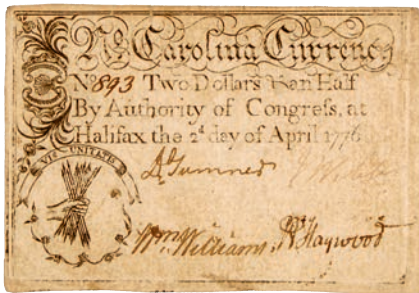 No. Carolina Currency
No 893 Two Dollars & an Half
By Authority of Congreſs, at
Halifax the 2d day of April 1776
VIS UNITATIS
Sumner
Wm Williams. Haywood